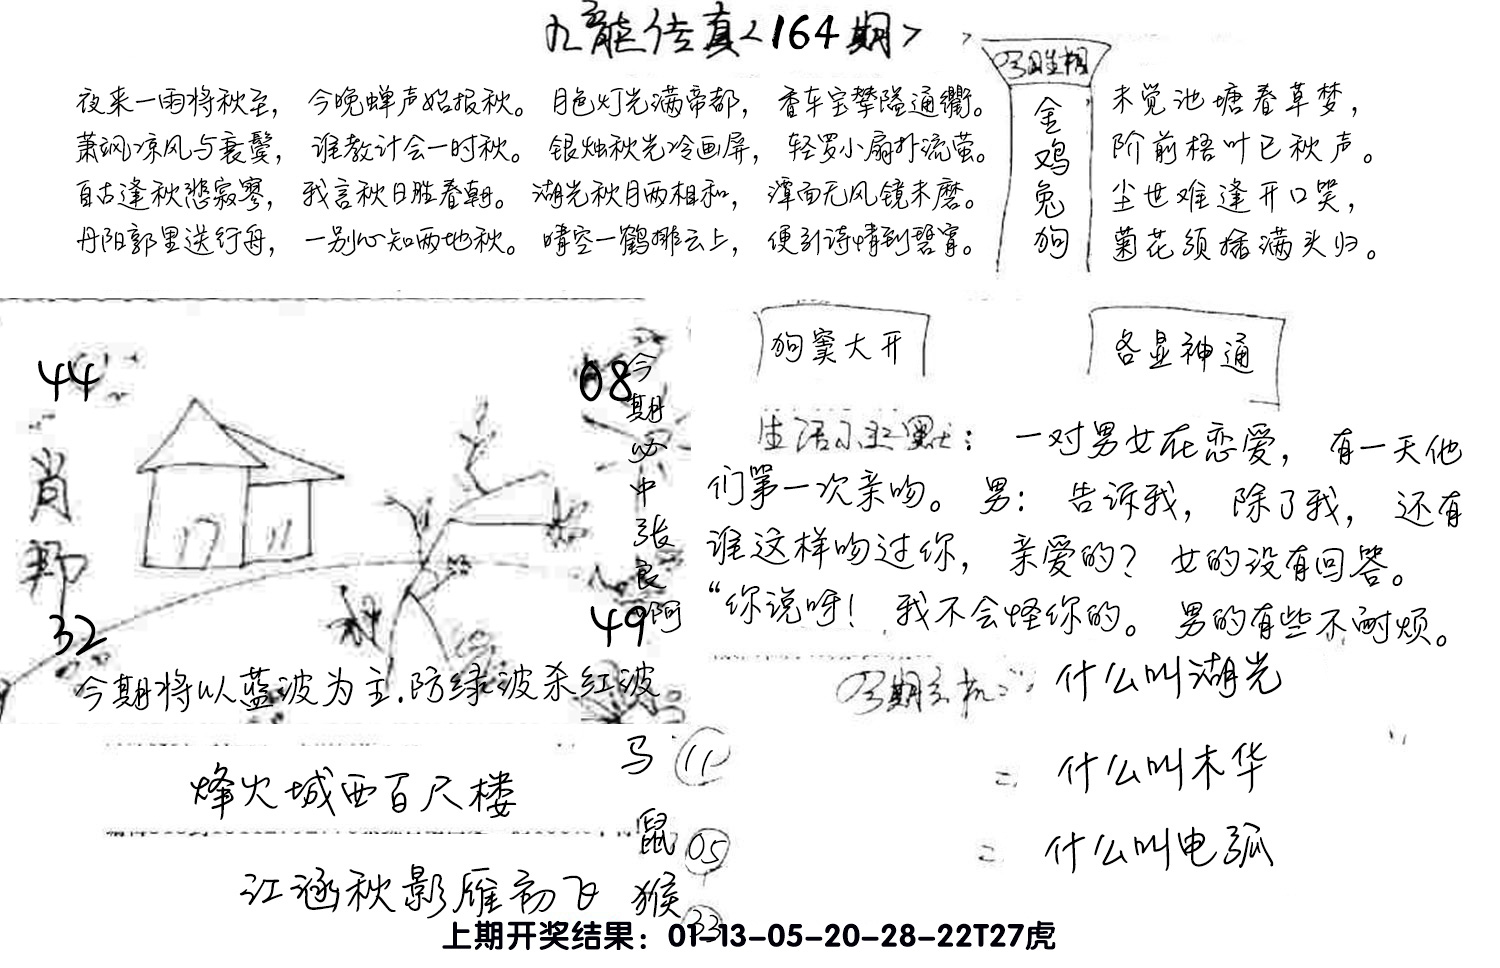 九龙传真<164期>
夜来一雨将秋至，今晚蝉声始报秋。月色灯光满帝都，香车宝攀隘通衢。
萧飒凉风与衰鬓，谁教计会一时秋。银烛秋光冷画屏，轻罗小扇扑流萤。
自古逢秋悲寂寥，我言秋日胜春朝。湖光秋月两相和，潭面无风镜未磨。
丹阳郭里送行舟，一别心知两地秋。晴空一鹤排云上，便引诗情到碧霄。
金鸡兔狗
未觉池塘春草梦，
阶前梧叶已秋声。
尘世难逢开口笑，
菊花须插满头归。
44
08
肖
32
49
今期必中张良阿
今期将以蓝波为主.防绿波杀红波
狗窦大开
各显神通
生活小幽默：一对男女在恋爱，有一天他
们第一次亲吻。男：告诉我，除了我，还有
谁这样吻过你，亲爱的？女的没有回答。
“你说呀！我不会怪你的。男的有些不耐烦。
今期玄机：什么叫湖光
= 什么叫木华
= 什么叫电弧
烽火城西百尺楼
江涵秋影雁初飞
马 11
鼠 05
猴 33
上期开奖结果：01-13-05-20-28-22T27虎